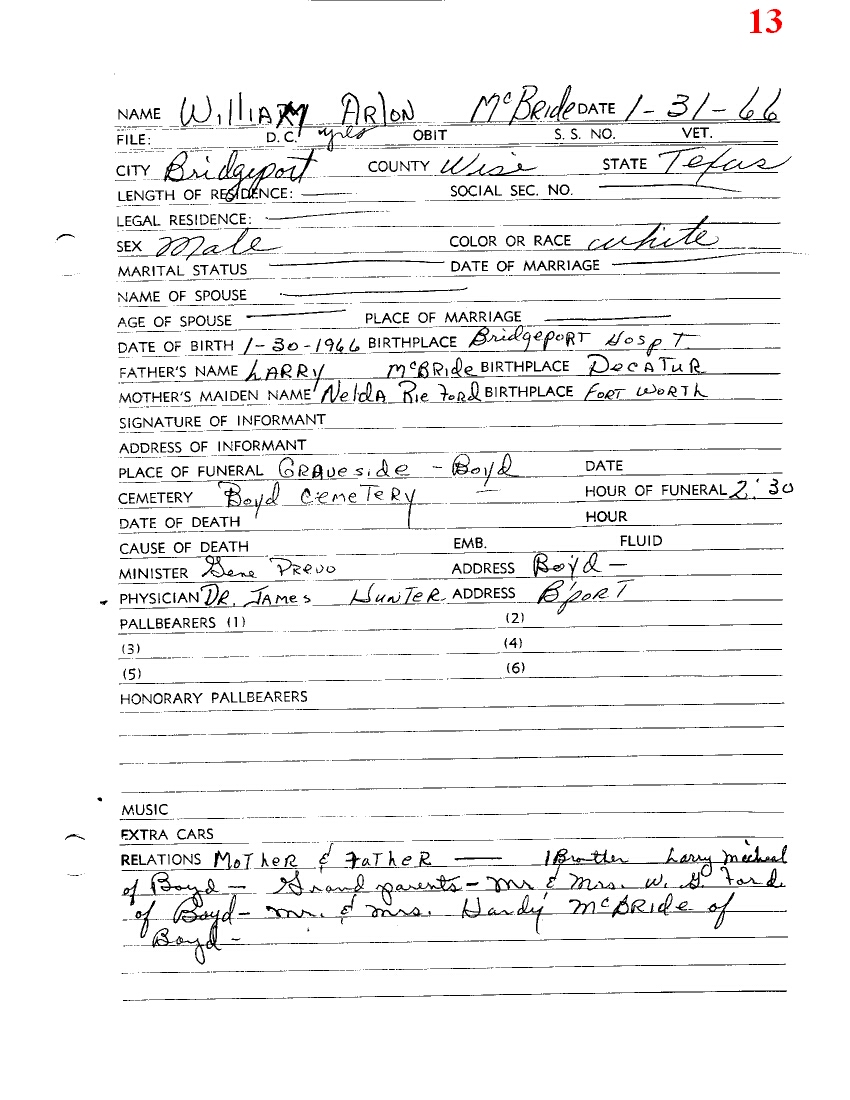 13
NAME William Arlon McBride DATE 1-31-66
FILE: D.C. yes OBIT S. S. NO. VET.
CITY Bridgeport COUNTY Wise STATE Texas
LENGTH OF RESIDENCE: — SOCIAL SEC. NO. —
LEGAL RESIDENCE: —
SEX Male COLOR OR RACE white
MARITAL STATUS — DATE OF MARRIAGE —
NAME OF SPOUSE —
AGE OF SPOUSE — PLACE OF MARRIAGE —
DATE OF BIRTH 1-30-1966 BIRTHPLACE Bridgeport Hospt.
FATHER'S NAME LARRY McBRide BIRTHPLACE DecATUR
MOTHER'S MAIDEN NAME NeldA Rie Ford BIRTHPLACE FORT WORTH
SIGNATURE OF INFORMANT
ADDRESS OF INFORMANT
PLACE OF FUNERAL GRAveside - Boyd DATE
CEMETERY Boyd CemeTeRy — HOUR OF FUNERAL 2:30
DATE OF DEATH HOUR
CAUSE OF DEATH EMB. FLUID
MINISTER Gene Prevo ADDRESS Boyd —
PHYSICIAN DR. JAmes HunTeR ADDRESS B'porT
PALLBEARERS (1) (2)
(3) (4)
(5) (6)
HONORARY PALLBEARERS
MUSIC
EXTRA CARS
RELATIONS MoTheR & FaTheR — 1 Brother Larry Micheal
of Boyd - Grand parents - Mr & Mrs. W. G. Ford
of Boyd - mr. & mrs. Hardy McBRide of
Boyd -